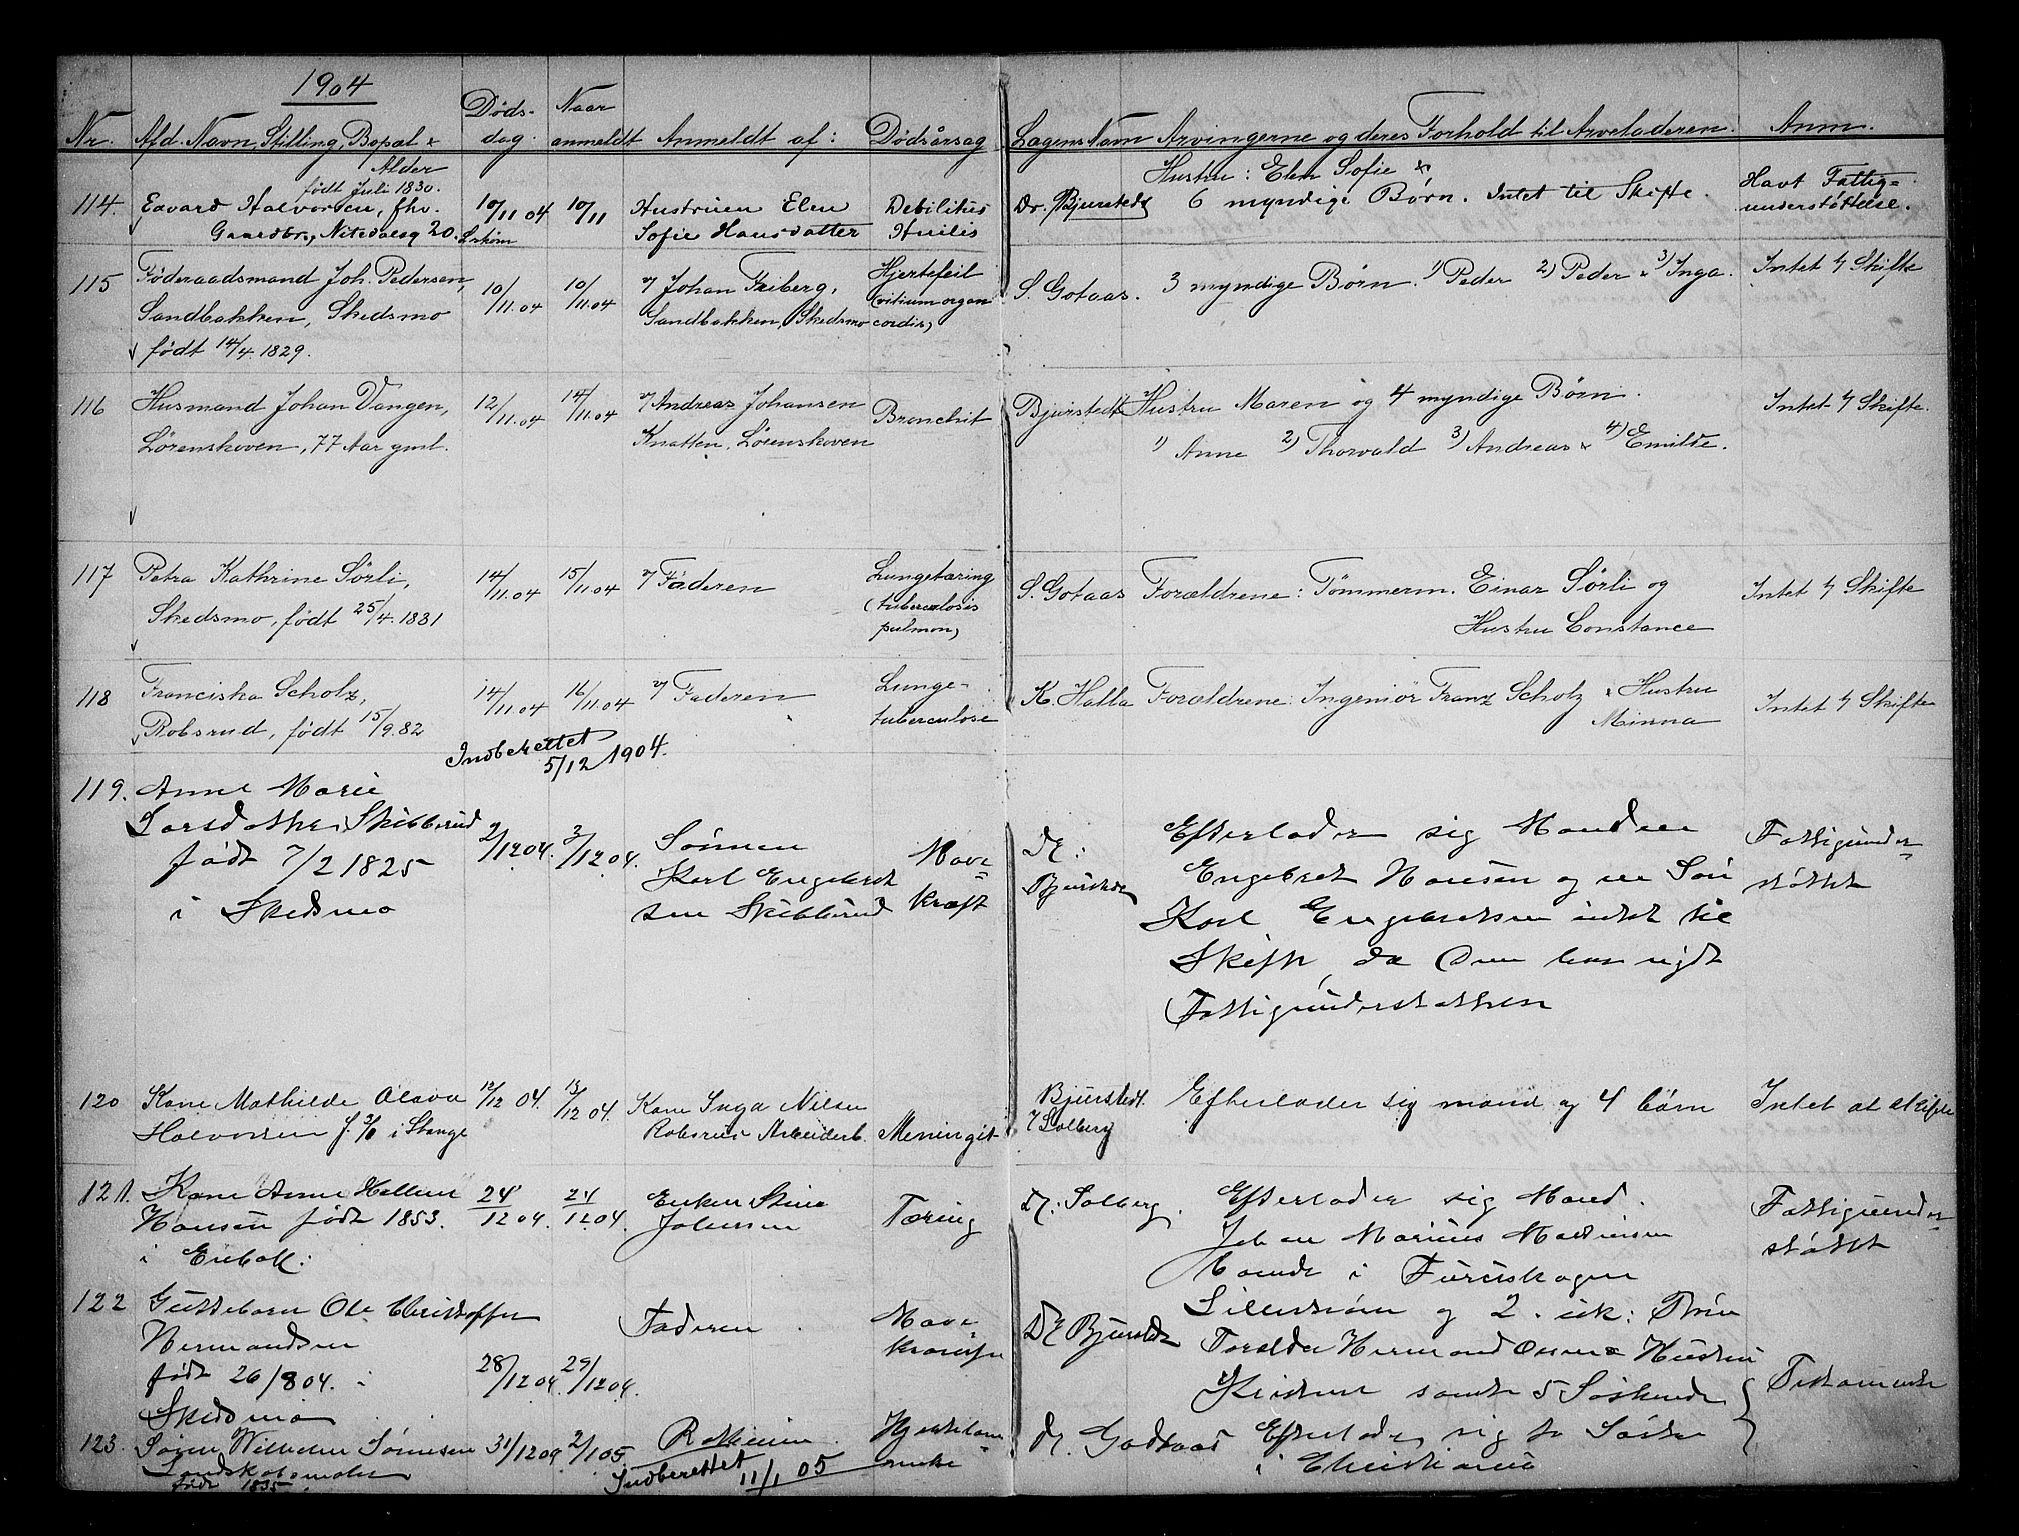 1904
Nr. Afd. Navn, Stilling, Bopæl & Alder
Døds-dag.
Naar anmeldt
Anmeldt af:
Dødsårsag
Lægens Navn
Arvingerne og deres Forhold til Arveladeren.
Anm.
114. Edvard Halvorsen, fhv.
født Juli 1830.
Gaardbr., Nitedalsg 20. Lrstrøm
10/11 04
10/11
Hustruen Elen
Sofie Hansdatter
Debilitas
Senilis
Dr. Bjurstedt
Hustru: Elen Sofie &
6 myndige Børn. Intet til Skifte.
Havt Fattig=
understøttelse.
115 Føderaadsmand Joh. Pedersen,
Sandbakken, Skedsmo
født 14/4. 1829.
10/11.04
10/11.04
v/ Johan Friberg,
Sandbakken, Skedsmo
Hjertefeil
(vitium organ
cordis)
S. Gotaas.
3 myndige Børn. 1) Peder 2) Peder & 3) Inga.
Intet t/ Skifte
116 Husmand Johan Vangen,
Lørenskoven, 77 Aar gml.
12/11.04
14/11.04
v/ Andreas Johansen
Knatten, Lørenskoven
Bronchit
Bjurstedt
Hustru Maren og 4 myndige Børn.
1) Anne 2) Thorvald 3) Andreas & 4) Emilde.
Intet t/ Skifte.
117 Petra Kathrine Sørli,
Skedsmo, født 25/4. 1831
14/11.04
15/11.04
v/ Faderen
Lungetæring
(tuberculosis
pulmon)
S. Gotaas
Forældrene: Tømmerm. Einar Sørli og
Hustru Constance
Intet t/ Skifte
118 Franciska Scholz,
Robsrud, født 15/9.82
14/11.04
16/11.04
v/ Faderen
Lunge-
tuberculose
K. Halla
Forældrene: Ingeniør Franz Scholz & Hustru
Minna
Intet t/ Skifte
Indberettet
5/12 1904.
119. Anne Marie
Larsdatter Skibberud
født 7/2 1825
i Skedsmo
2/12 04.
3/12 04.
Sønnen
Karl Engebret
sen Skibberud
Mave=
kræft
Dr:
Bjurstedt
Efterlader sig Manden
Engebret Hansen og en Søn
Karl Engebretsen intet til
Skifte, da Den har nydt
Fattigunderstøttelse
Fattigunder=
støttet
120 Kone Mathilde Olava
Halvorsen f. 3/8 i Stange
12/12 04.
13/12 04.
Kone Inga Nilsen
Robsrud Arbeiderb.
Meningit
Bjurstedt
/Solberg
Efterlader sig mand og 4 børn
Intet at skifte
121. Kone Anne Helene
Hansen født 1853.
i Enebak.
24/12 04.
24/12 04.
Enken Stine
Johansen
Tæring
Dr: Solberg.
Efterlader sig Mand.
Johan Marius Martinsen
boende i Furuskogen
Lillestrøm og 2
Fattigunder=
støttet
122 Guttebarn Ole Christoffer
Hermandsen
født 26/8 04. i
Skedsmo
28/12 04
29/12 04.
Faderen
Mave
Dr Bjurstedt
Foreldre Hermand Hustru
Kristine samt 5 Søskende
123. Søren Wilhelm Sørensen
Landskabsmaler
født 1835
31/12 04
2/1 05.
Indberettet
11/1 05
Dr. Godtaas
Efterlader sig to Søstre
i Christiania
Testamente